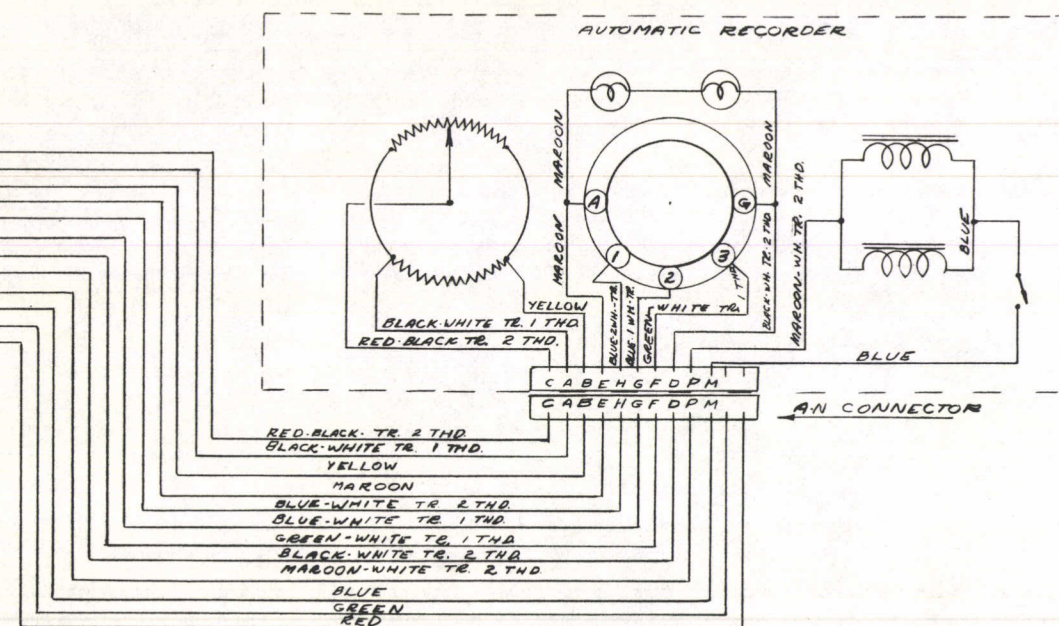 AUTOMATIC RECORDER
MAROON
MAROON
MAROON
A
G
1
2
3
YELLOW
BLACK-WHITE TR. 1 THD.
RED-BLACK TR. 2 THD.
BLUE-2WH-TR.
BLUE-1WH-TR.
GREEN-WHITE TR. 1 THD.
BLACK-WH-TR-2 THD.
MAROON-WH.TR. 2 THD.
BLUE
BLUE
C A B E H G F D P M
C A B E H G F D P M
A-N CONNECTOR
RED-BLACK-TR. 2 THD.
BLACK-WHITE TR. 1 THD.
YELLOW
MAROON
BLUE-WHITE TR. 2 THD.
BLUE-WHITE TR. 1 THD.
GREEN-WHITE TR. 1 THD.
BLACK-WHITE TR. 2 THD.
MAROON-WHITE TR. 2 THD.
BLUE
GREEN
RED